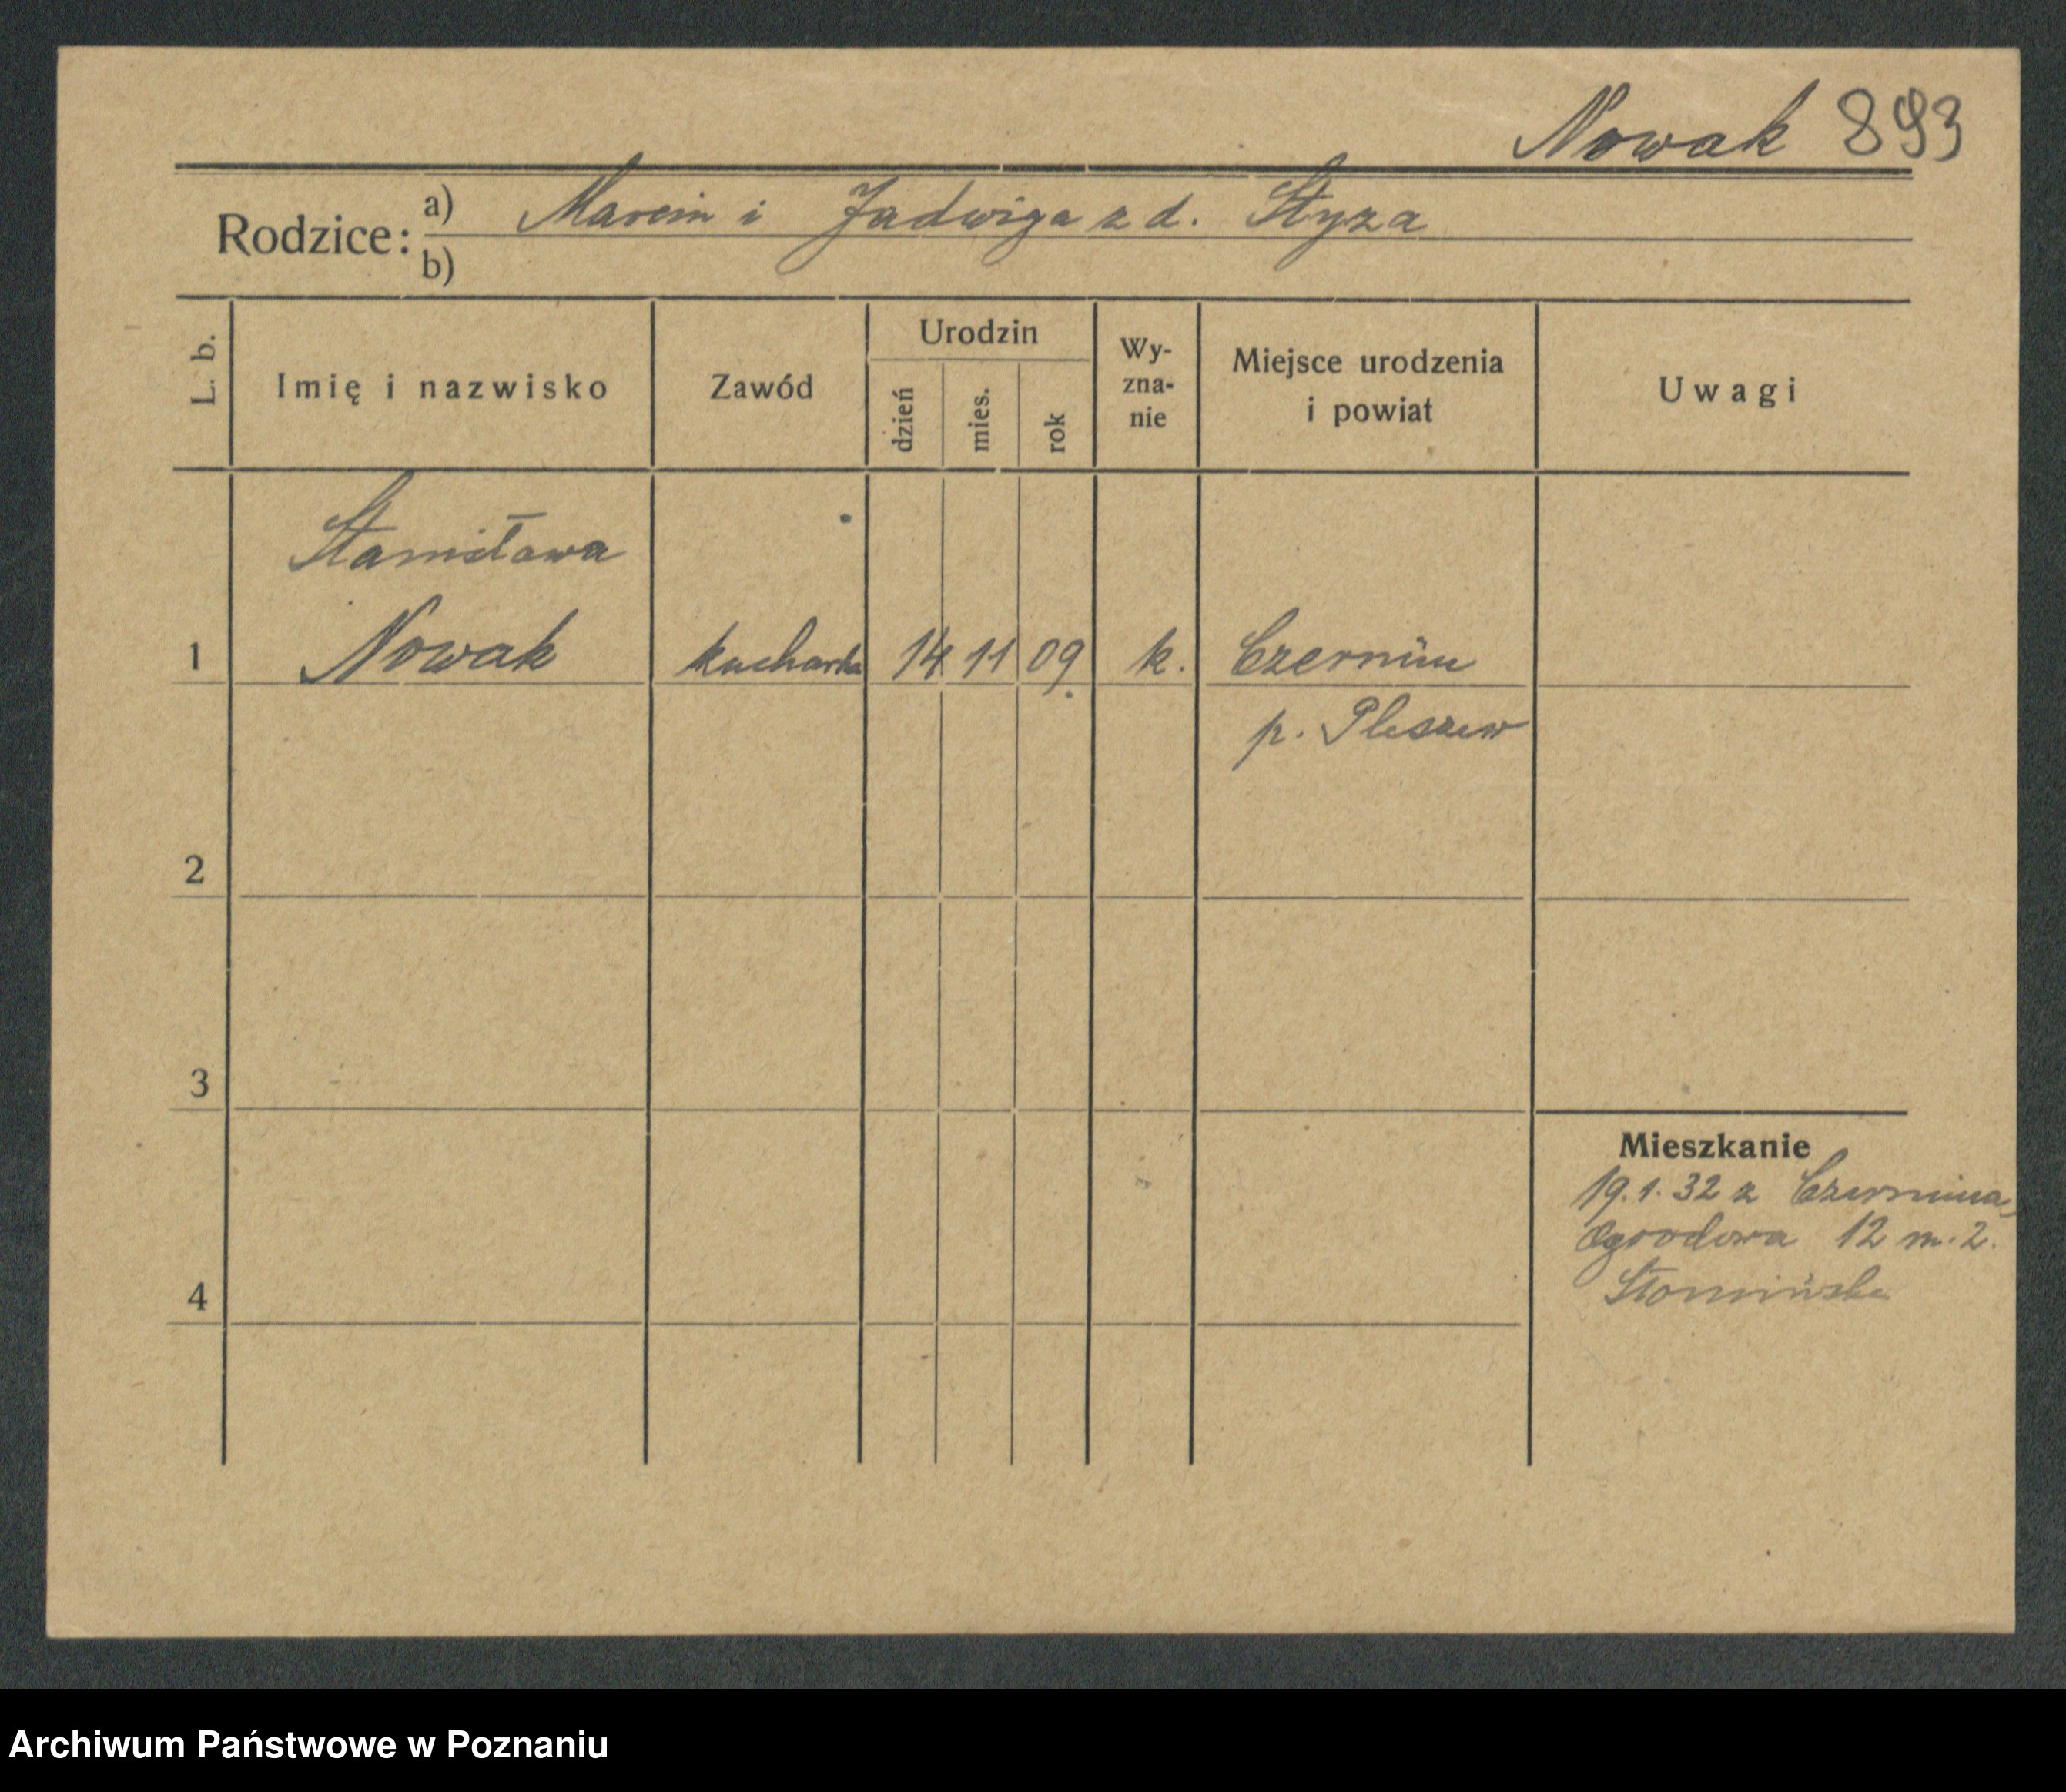 Nowak 893
Rodzice: a) Marcin i Jadwiga z d. Styza
b)
L. b.
Imię i nazwisko
Zawód
Urodzin
dzień
mies.
rok
Wy-
zna-
nie
Miejsce urodzenia
i powiat
Uwagi
Stanisława
1 Nowak kucharka 14 11 09 k. Czermin
p. Pleszew
2
3
Mieszkanie
19.1.32 z Czermina,
Ogrodowa 12 m. 2.
4
Archiwum Państwowe w Poznaniu